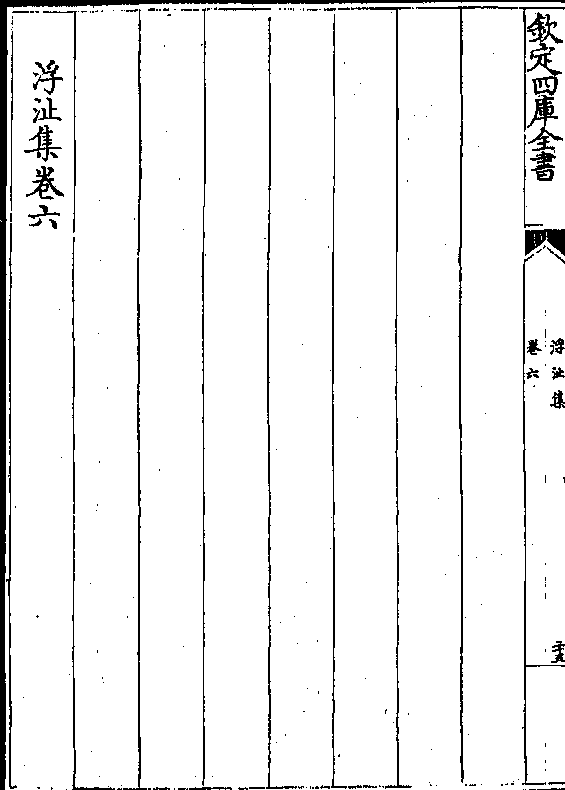 欽定四庫全書
浮沚集
卷六
二十五
浮沚集卷六